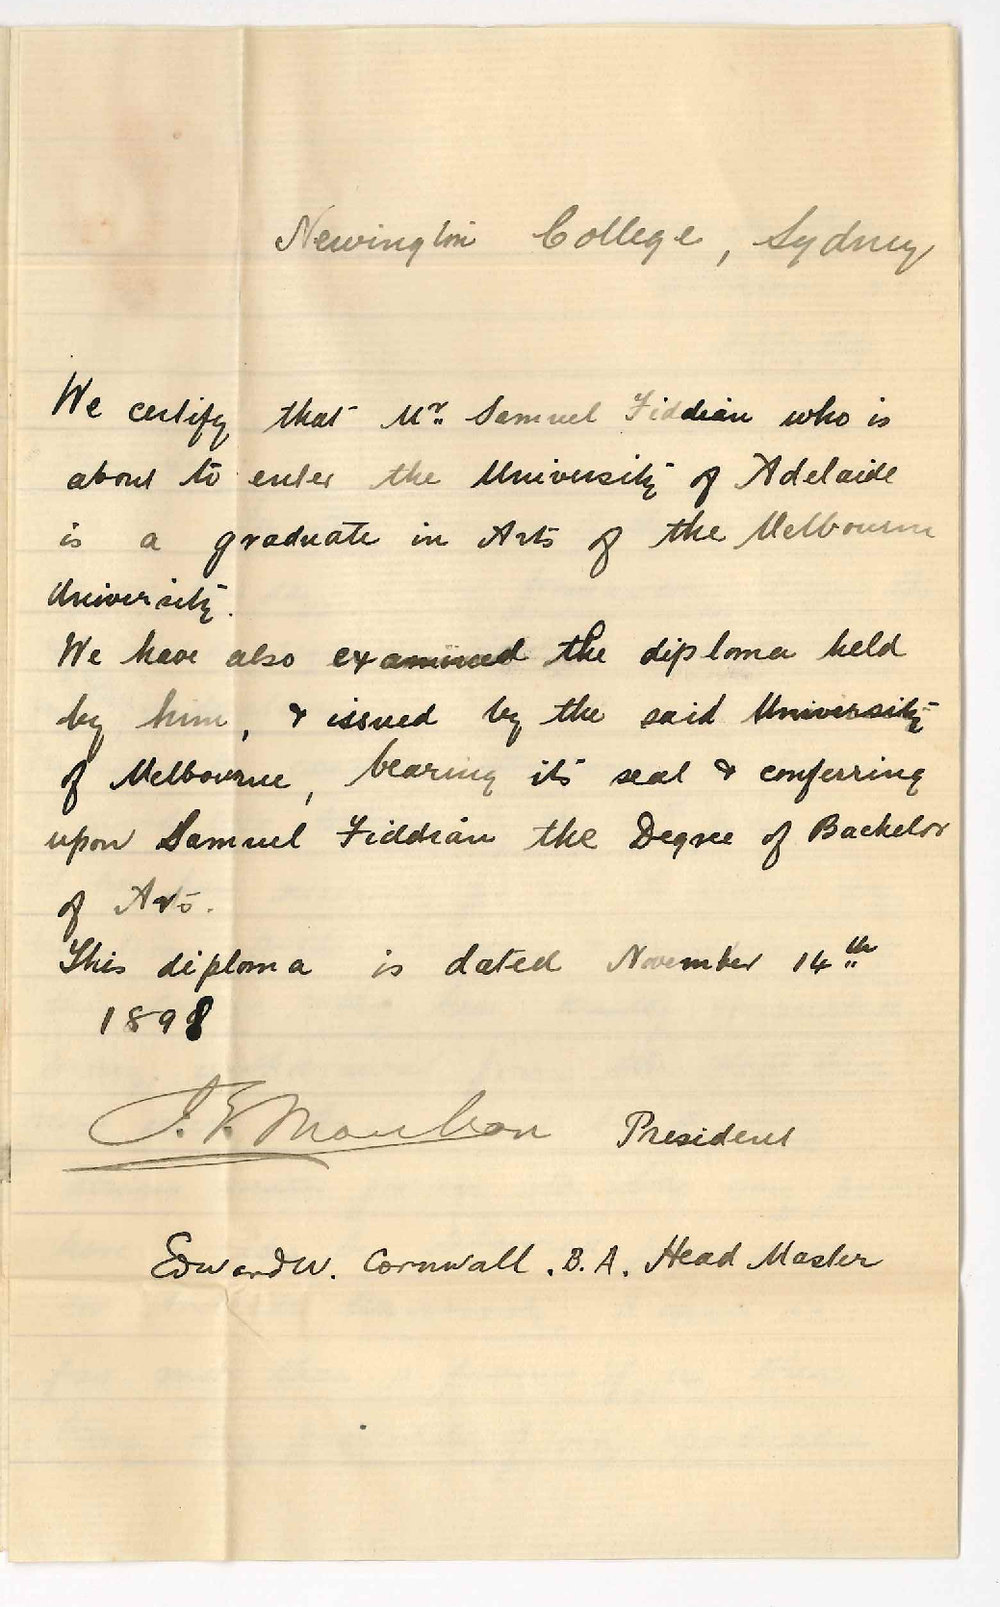 Newington College, Sydney
We certify that Mr. Samuel Fiddian who is
about to enter the University of Adelaide
is a graduate in Arts of the Melbourne
University.
We have also examined the diploma held
by him, & issued by the said University
of Melbourne, bearing its seal & conferring
upon Samuel Fiddian the Degree of Bachelor
of Arts.
This diploma is dated November 14th
1898
J. E. Moulton President
Edward W. Cornwall. B. A. Head Master